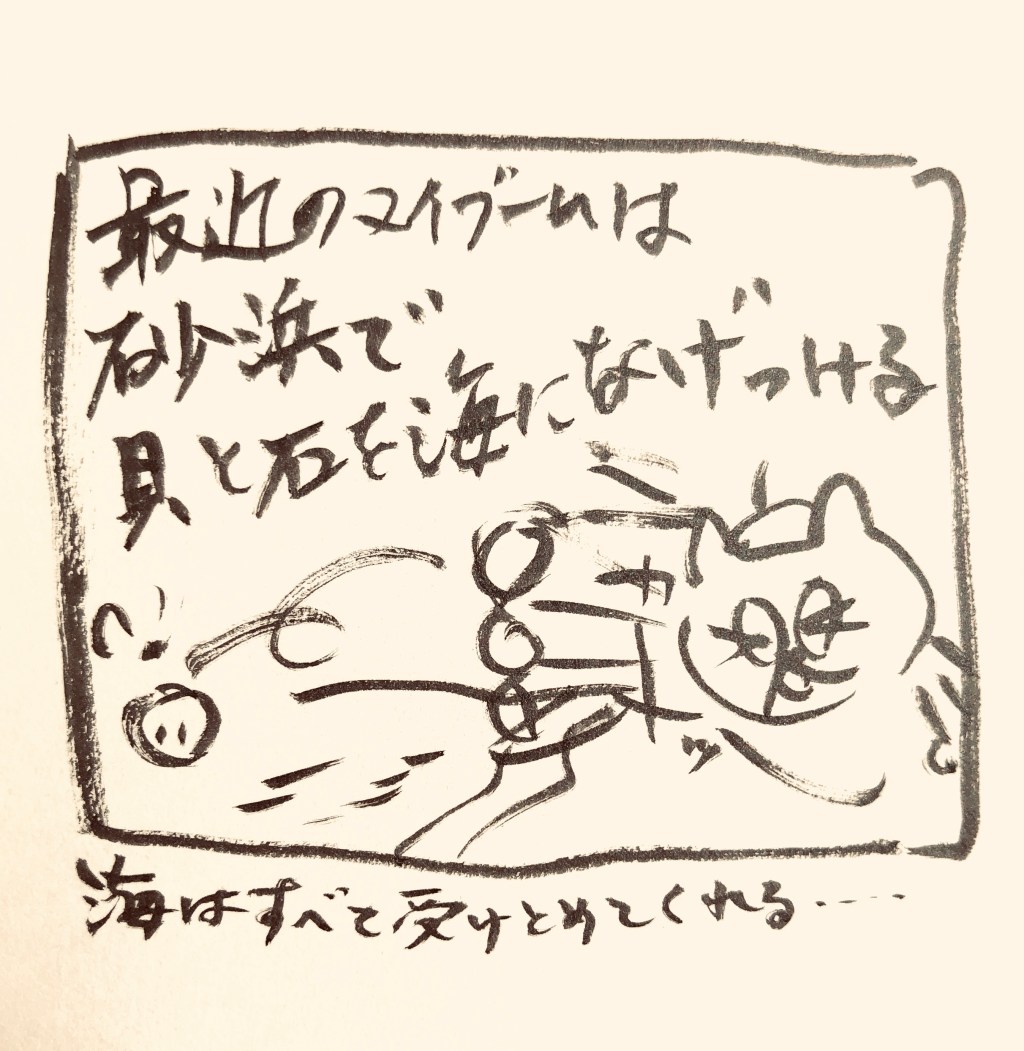 最近のマイブームは
砂浜で
貝と石を海になげつける
海はすべて受けとめてくれる……